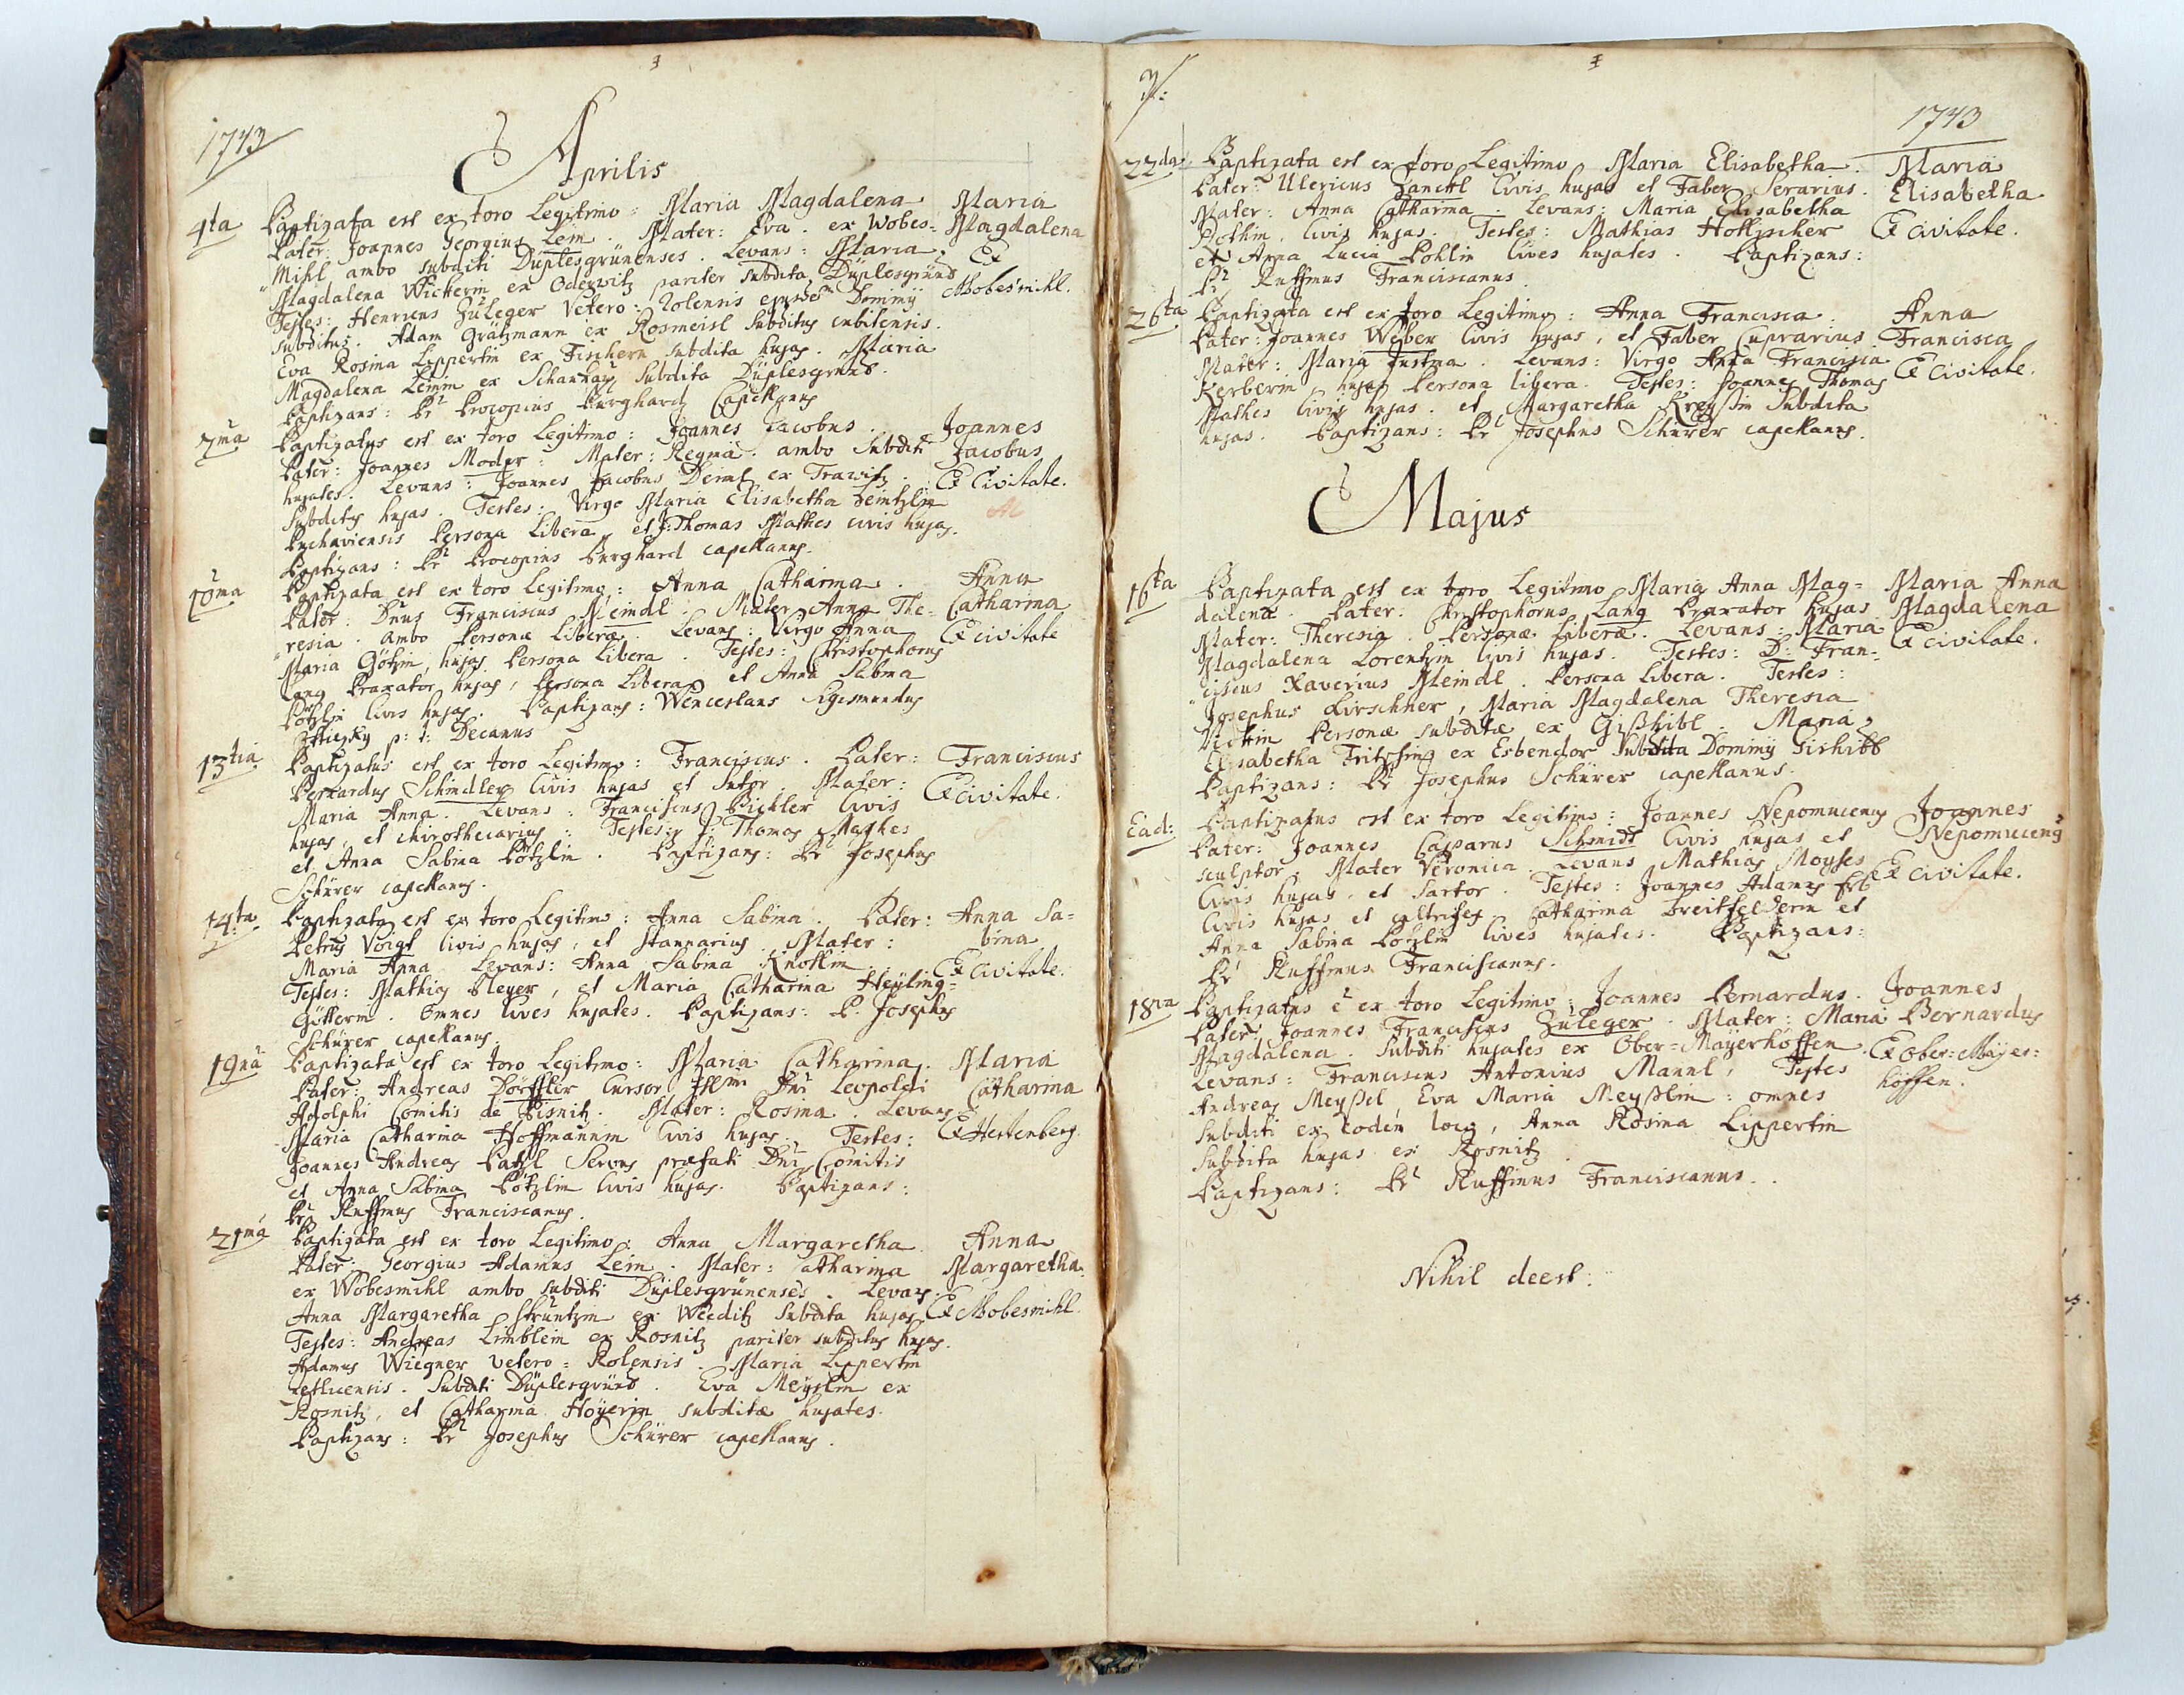 1743
Aprilis
4ta Baptizata est ex toro Legitimo: Maria Magdalena Maria
Pater: Joannes Georgius Lein. Mater: Eva. ex Wobes= Magdalena
Mihl ambo subditi Düplesgrünenses. Levans: Maria Ex
Magdalena Wickerin ex Oderwitz pariter subdita Düplesgründ Wobesmihl.
Testes: Henricus Züleger Vetero=Rolensis ejusdem Dominij
subditus. Adam Grätzmann ex Rosmeisl Subditus cubitensis.
Eva Rosina Lippertin ex Fischern subdita hujas. Maria
Magdalena Leinin ex Schankau Subdita Düplesgründ.
Baptizans: Pr Procopius Burghard Capellanus
7ma Baptizatus est ex toro Legitimo: Joannes Jacobus. Joannes
Pater: Joannes Moder: Mater: Regina. ambo Subditi Jacobus
hujates. Levans: Joannes Jacobus Deiml ex Trawitz. Ex Civitate.
Subditus hujas. Testes: Virgo Maria Elisabetha
Persona Libera, et J: Thomas Mathes civis hujas.
Baptizans: Pr Procopius Burghard capellanus.
10ma Baptizata est ex toro Legitimo: Anna Catharina. Anna
Pater: Dnus Franciscus Meindl. Mater Anna The= Catharina
resia. ambo Personæ Liberæ. Levans: Virgo Anna Ex civitate
Maria Götzin, hujas Persona Libera. Testes: Christophorus
Lang Braxator hujas, Persona Libera, et Anna Sabina
Pötzlin Civis hujas. Baptizans: Wenceslaus Sigismundus
p: t: Decanus
13tia Baptizatus est ex toro Legitimo: Franciscus. Pater: Franciscus
Bernardus Schindler Civis hujas et Sutor. Mater: Ex civitate.
Maria Anna. Levans: Franciscus Pickler Civis
hujas, et chirothecarius: Testes: J: Thomas Mathes
et Anna Sabina Pötzlin. Baptizans: Pr Josephus
Schürer capellanus.
14ta Baptizata est ex toro Legitimo: Anna Sabina. Pater: Anna Sa=
Petrus Voigt civis hujas, et stannarius. Mater: bina
Maria Anna Levans: Anna Sabina Knollin. Ex Civitate.
Testes: Mathias Meyer, et Maria Catharina Heyling=
Götterin. Omnes Cives hujates. Baptizans: P. Josephus
Schürer capellanus.
19na Baptizata est ex toro Legitimo: Maria Catharina. Maria
Pater: Andreas Dörffler Cursor Illmi Dni Leopoldi Catharina
Adolphi Comitis de Pisnitz. Mater: Rosina. Levans
Maria Catharina Hoffmannin Civis hujas. Testes: Ex Hertenberg.
Joannes Andreas Patzl Servus præfati Dni Comitis
et Anna Sabina Pötzlin Civis hujas. Baptizans:
Pr Ruffinus Franciscanus.
21ma Baptizata est ex toro Legitimo: Anna Margaretha Anna
Pater: Georgius Adamus Lein. Mater: Catharina Margaretha
ex Wobesmihl ambo subditi Düplesgrünenses. Levans.
Anna Margaretha Struntzin ex Weeditz Subdita hujas Ex Wobesmihl.
Testes: Andreas Limblein ex Rosnitz pariter subditus hujas.
Adamus Wiegner Vetero=Rolensis. Maria Lippertin
Subditi Düplesgründ. Eva Meyslin ex
Rosnitz, et Catharina Höyerin subditæ hujates.
Baptizans: Pr Josephus Schürer capellanus.
7:
1743
22da Baptizata est ex toro Legitimo, Maria Elisabetha. Maria
Pater: Ulericus Zanckl Civis hujas et Faber Serarius. Elisabetha
Mater: Anna Catharina. Levans: Maria Elisabetha
Plothin, Civis hujas. Testes: Mathias Hollischer Ex civitate.
et Anna Lucia Pohlin Cives hujates. Baptizans:
Pr Ruffinus Franciscanus
26ta Baptizata est ex toro Legitimo: Anna Francisca. Anna
Pater: Joannes Weber Civis hujas, et Faber Cuprarius Francisca
Mater: Maria Justina. Levans: Virgo Anna Francisca
Kerberin hujas Persona libera. Testes: Joannes Thomas Ex Civitate.
Mathes Civis hujas. et Margaretha Kreysin Subdita
hujas. Baptizans: Pr Josephus Schürer capellanus.
Majus
16ta Baptizata est ex toro Legitimo Maria Anna Mag= Maria Anna
dalena. Pater: Christophorus Lang Braxator hujas Magdalena
Mater: Theresia. Personæ Liberæ. Levans: Maria
Magdalena Lorentzin Civis hujas. Testes: D: Fran= Ex civitate.
ciscus Xaverius Meindl. Persona Libera. Testes:
Josephus Kirschner, Maria Magdalena Theresia
Personæ subditæ ex Gißhibl. Maria
Elisabetha Fritzsing ex Esbendor Subdita Dominij Gishibl
Baptizans: Pr Josephus Schürer capellanus.
Ead: Baptizatus est ex toro Legitimo: Joannes Nepomucenus Joannes
Pater: Joannes Casparus Schmidt Civis hujas et Nepomucenus
sculptor. Mater Veronica. Levans Mathias Moyses
Civis hujas, et Sartor. Testes: Joannes Adamus Ex Civitate.
Civis hujas et cultrifex Catharina Breitfelderin et
Anna Sabina Pötzlin Cives hujates. Baptizans:
Pr Ruffinus Franciscanus.
18va Baptizatus e ex toro Legitimo: Joannes Bernardus. Joannes
Pater: Joannes Franciscus Züleger. Mater: Maria Bernardus
Magdalena. Subditi hujates ex Ober=Mäyerhöffen. Ex Ober=Mäyer=
Levans: Franciscus Antonius Mannl, Testes höffen.
Andreas Meyßel Eva Maria Meyßlin: omnes
Subditi ex eodem loco, Anna Rosina Lippertin
Subdita hujas ex Rosnitz.
Baptizans: Pr Ruffinus Franciscanus.
Nihil deest.